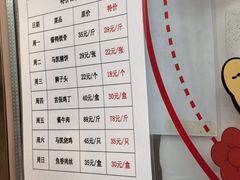 日期 菜品 原价 特价
周一 酱鸭锁骨 35元/斤 28元/斤
周二 马凯糖饼 28元/张 22元/张
周三 狮子头 22元/个 18元/个
周四 宫保鸡丁 40元/盒 30元/盒
周五 酱牛肉 89元/斤 78元/斤
周六 马凯烧鸡 45元/只 35元/只
周日 鱼香肉丝 35元/盒 30元/盒